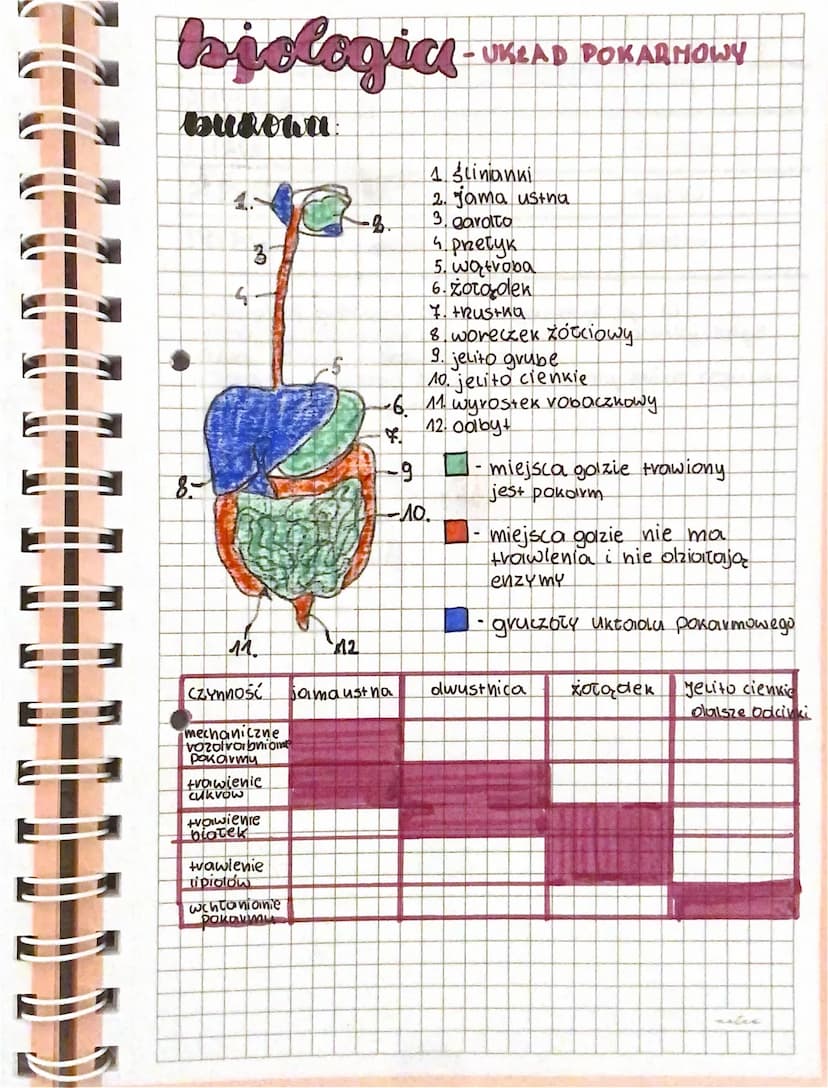 biologia - UKŁAD POKARMOWY
budowa:
1. ślinianki
2. jama ustna
3. gardło
4. przełyk
5. wątroba
6. żołądek
7. trzustka
8. woreczek żółciowy
9. jelito grube
10. jelito cienkie
11. wyrostek robaczkowy
12. odbyt
1.
2.
3
4
5
6.
7.
8.
9
10.
11.
12
- miejsca gdzie trawiony
jest pokarm
- miejsca gdzie nie ma
trawienia i nie działają
enzymy
- gruczoły układu pokarmowego
czynność jama ustna dwustnica żołądek jelito cienkie
dalsze odcinki
mechaniczne
rozdrabnianie
pokarmu
trawienie
cukrów
trawienie
białek
trawienie
lipidów
wchłanianie
pokarmu